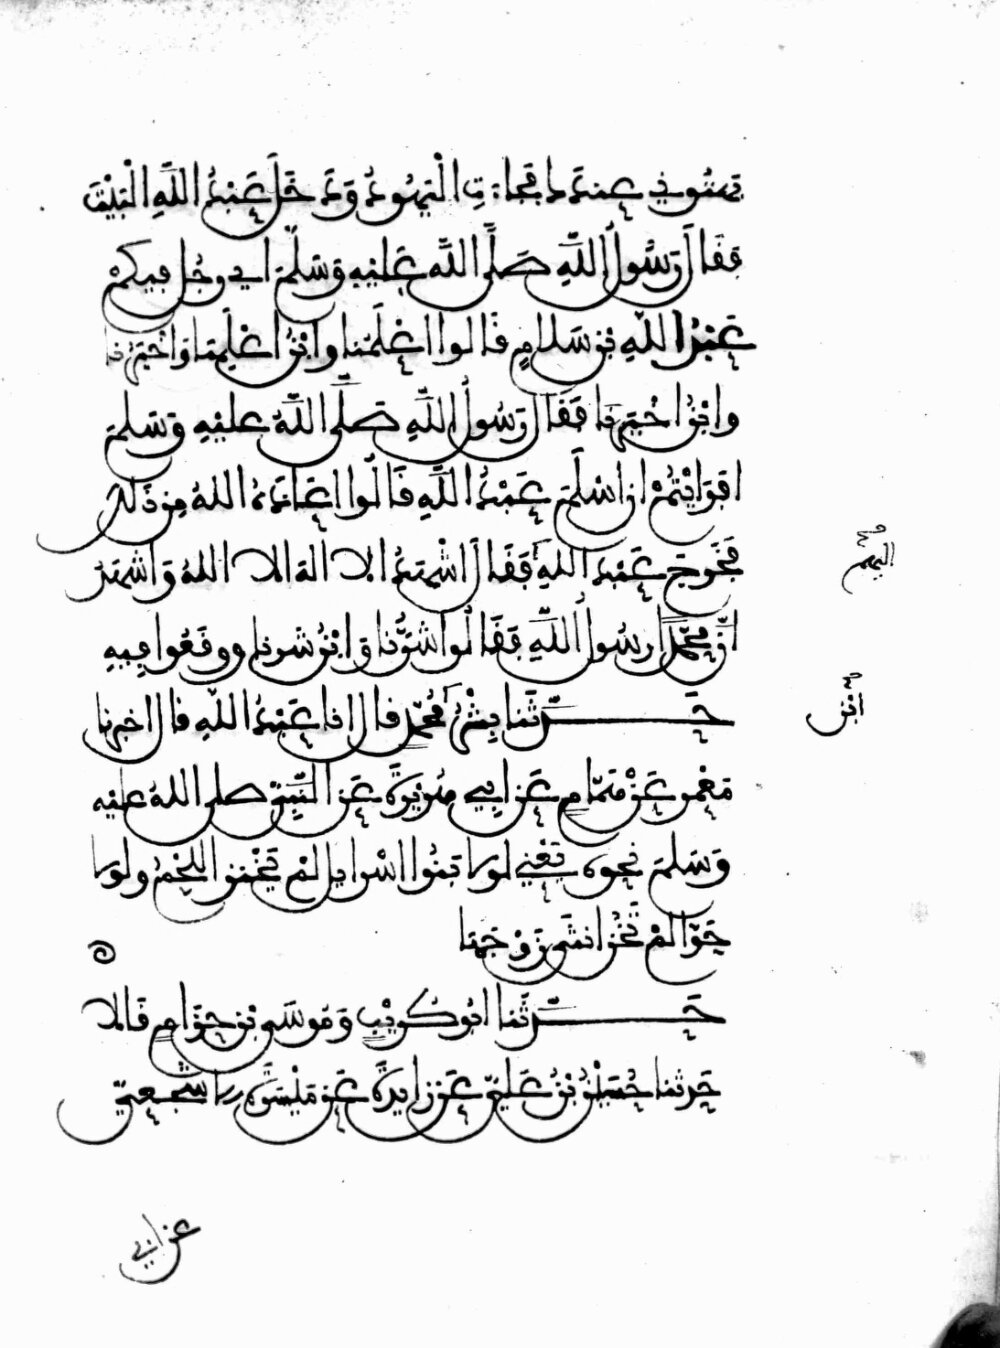 بهتوني عندك فجاءت اليهود ودخل عبد الله البيت
فقال رسول الله صلى الله عليه وسلم اي رجل فيكم
عبد الله بن سلام قالوا اعلمنا وابن اعلمنا واخيرنا
وابن اخيرنا فقال رسول الله صلى الله عليه وسلم
افرايتم ان اسلم عبد الله قالوا اعاذه الله من ذلك
فخرج عبد الله فقال اشهد ان لا اله الا الله واشهد
ان محمدا رسول الله فقالوا شرنا وابن شرنا ووقعوا فيه
حدثنا بشر محمد قال انا عبد الله قال اخبرنا
معمر عن همام عن ابي هريرة عن النبي صلى الله عليه
وسلم نحوه يعني لولا بنوا اسرايل لم يخنز اللحم ولولا
حوا لم تخن انثى زوجها
حدثنا ابو كريب وموسى بن حزام قالا
حدثنا حسين بن علي عن زايدة عن ميسرة الاشجعي
عن ابي
اليهم
ابن